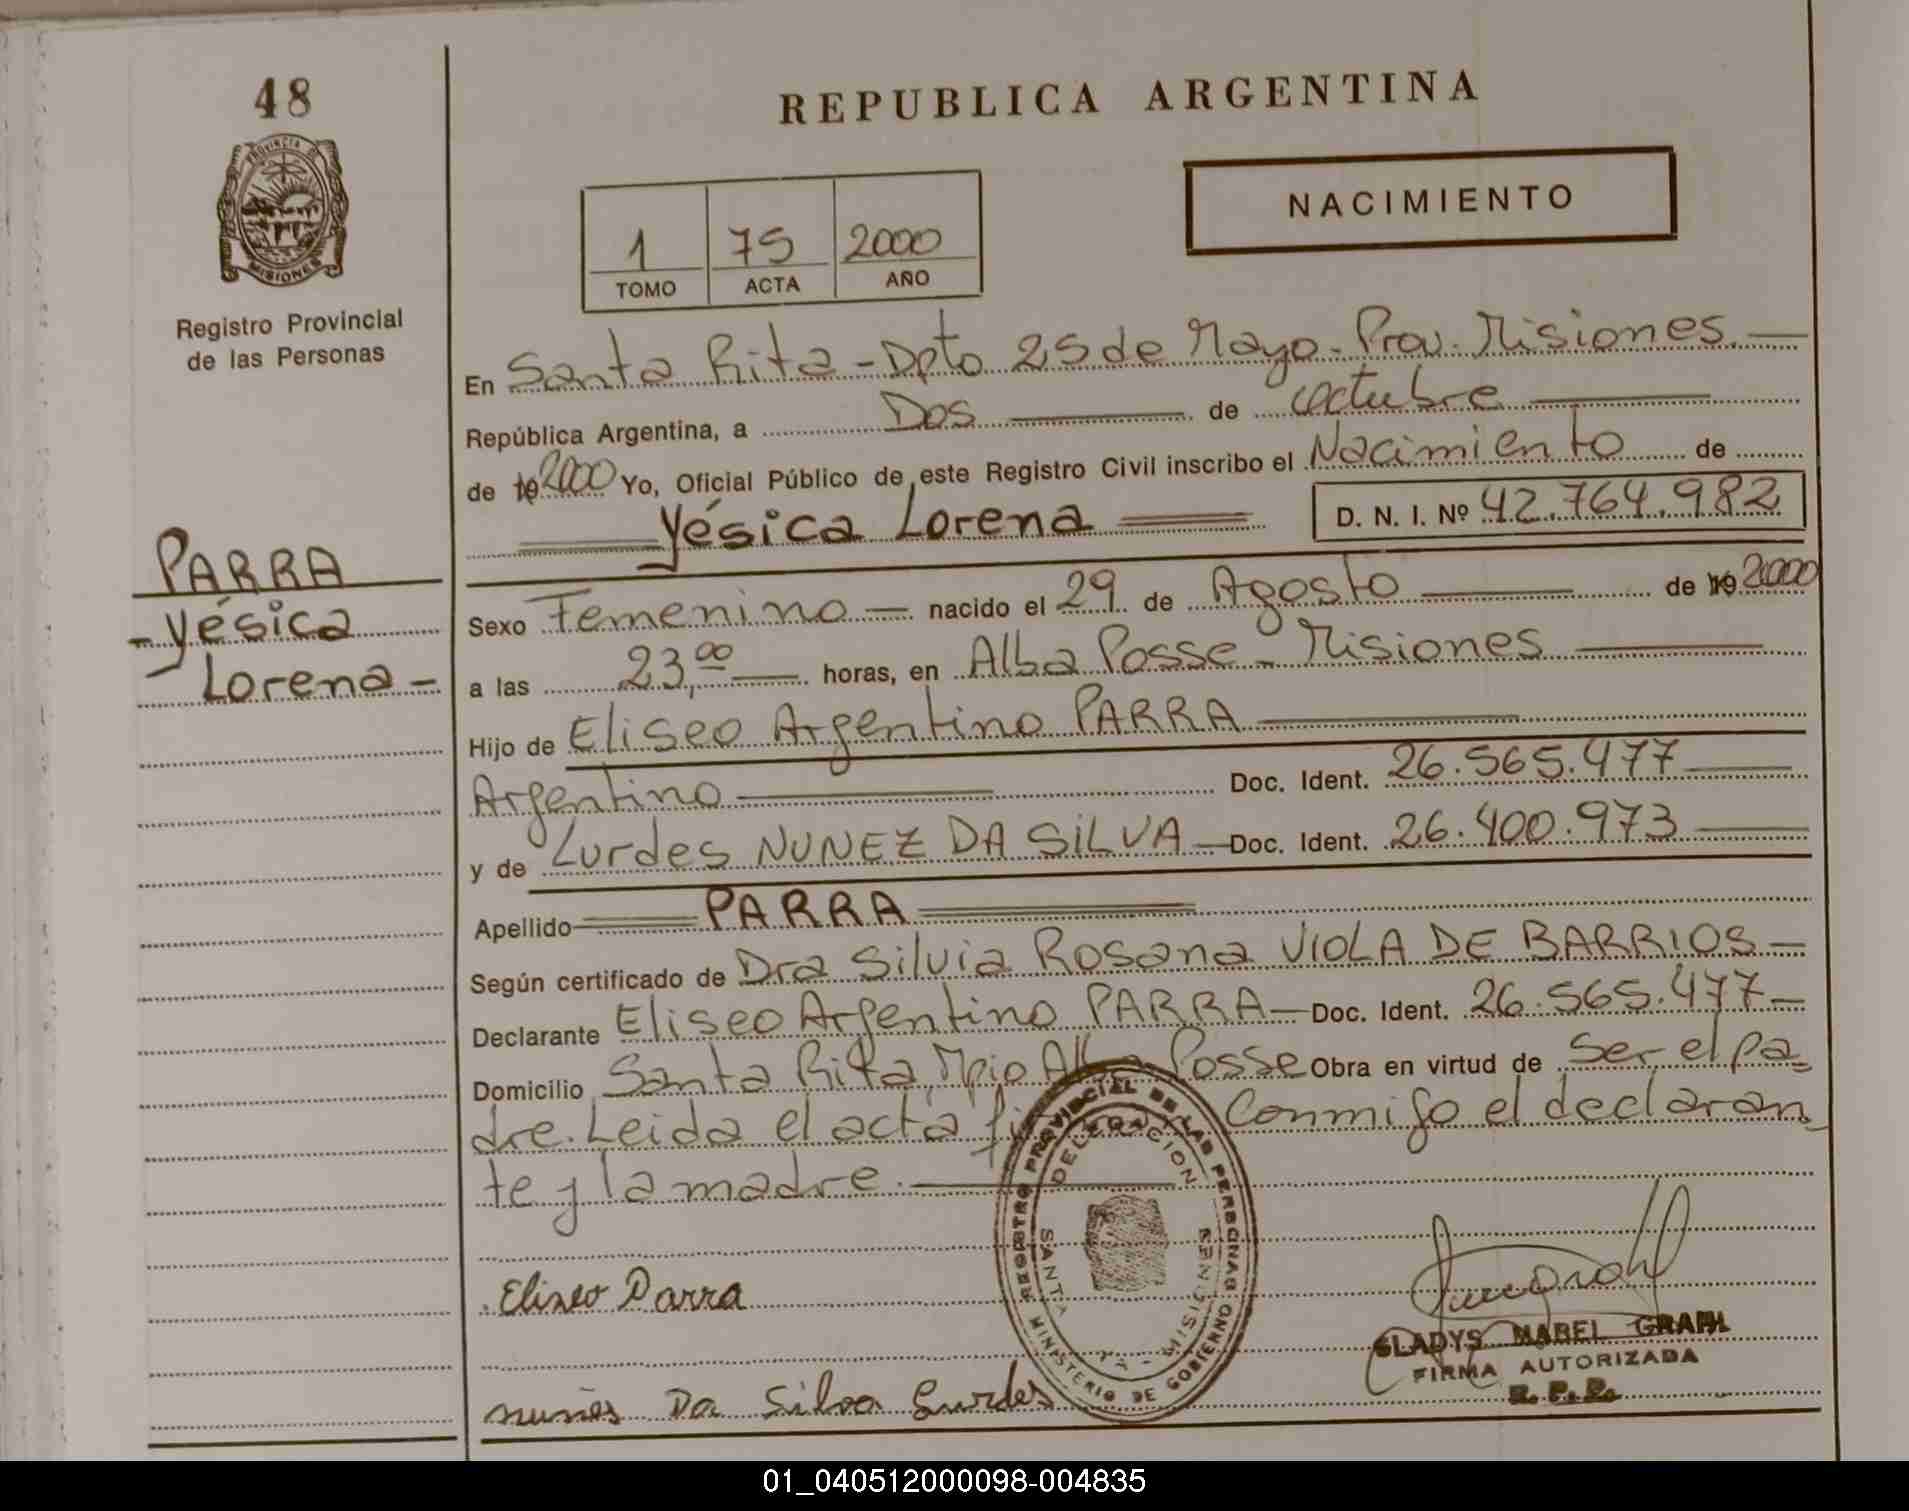 48
REPUBLICA ARGENTINA
PROVINCIA DE
MISIONES
NACIMIENTO
1 75 2000
TOMO ACTA AÑO
Registro Provincial
de las Personas
En Santa Rita - Dpto 25 de Mayo - Prov. Misiones. —
República Argentina, a Dos — de octubre —
de 19 2000 Yo, Oficial Público de este Registro Civil inscribo el Nacimiento de
Yésica Lorena D. N. I. Nº 42.764.982
PARRA
- Yésica
Lorena -
Sexo Femenino — nacido el 29 de Agosto — de 19 2000
a las 23,00 — horas, en Alba Posse - Misiones —
Hijo de Eliseo Argentino PARRA —
Argentino — Doc. Ident. 26.565.477 —
y de Lurdes NUNEZ DA SILVA — Doc. Ident. 26.400.973 —
Apellido — PARRA —
Según certificado de Dra Silvia Rosana VIOLA DE BARRIOS —
Declarante Eliseo Argentino PARRA — Doc. Ident. 26.565.477 —
Domicilio Santa Rita, Mpio Alba Posse Obra en virtud de Ser el pa-
dre. Leida el acta Conmigo el declaran-
te y la madre. —
REGISTRO PROVINCIAL DE LAS PERSONAS
DELEGACION
SANTA
MISIONES
MINISTERIO DE GOBIERNO
Eliseo Parra
GLADYS MABEL GRAHL
FIRMA AUTORIZADA
R. P. P.
nunes Da Silva Lurdes
01_040512000098-004835